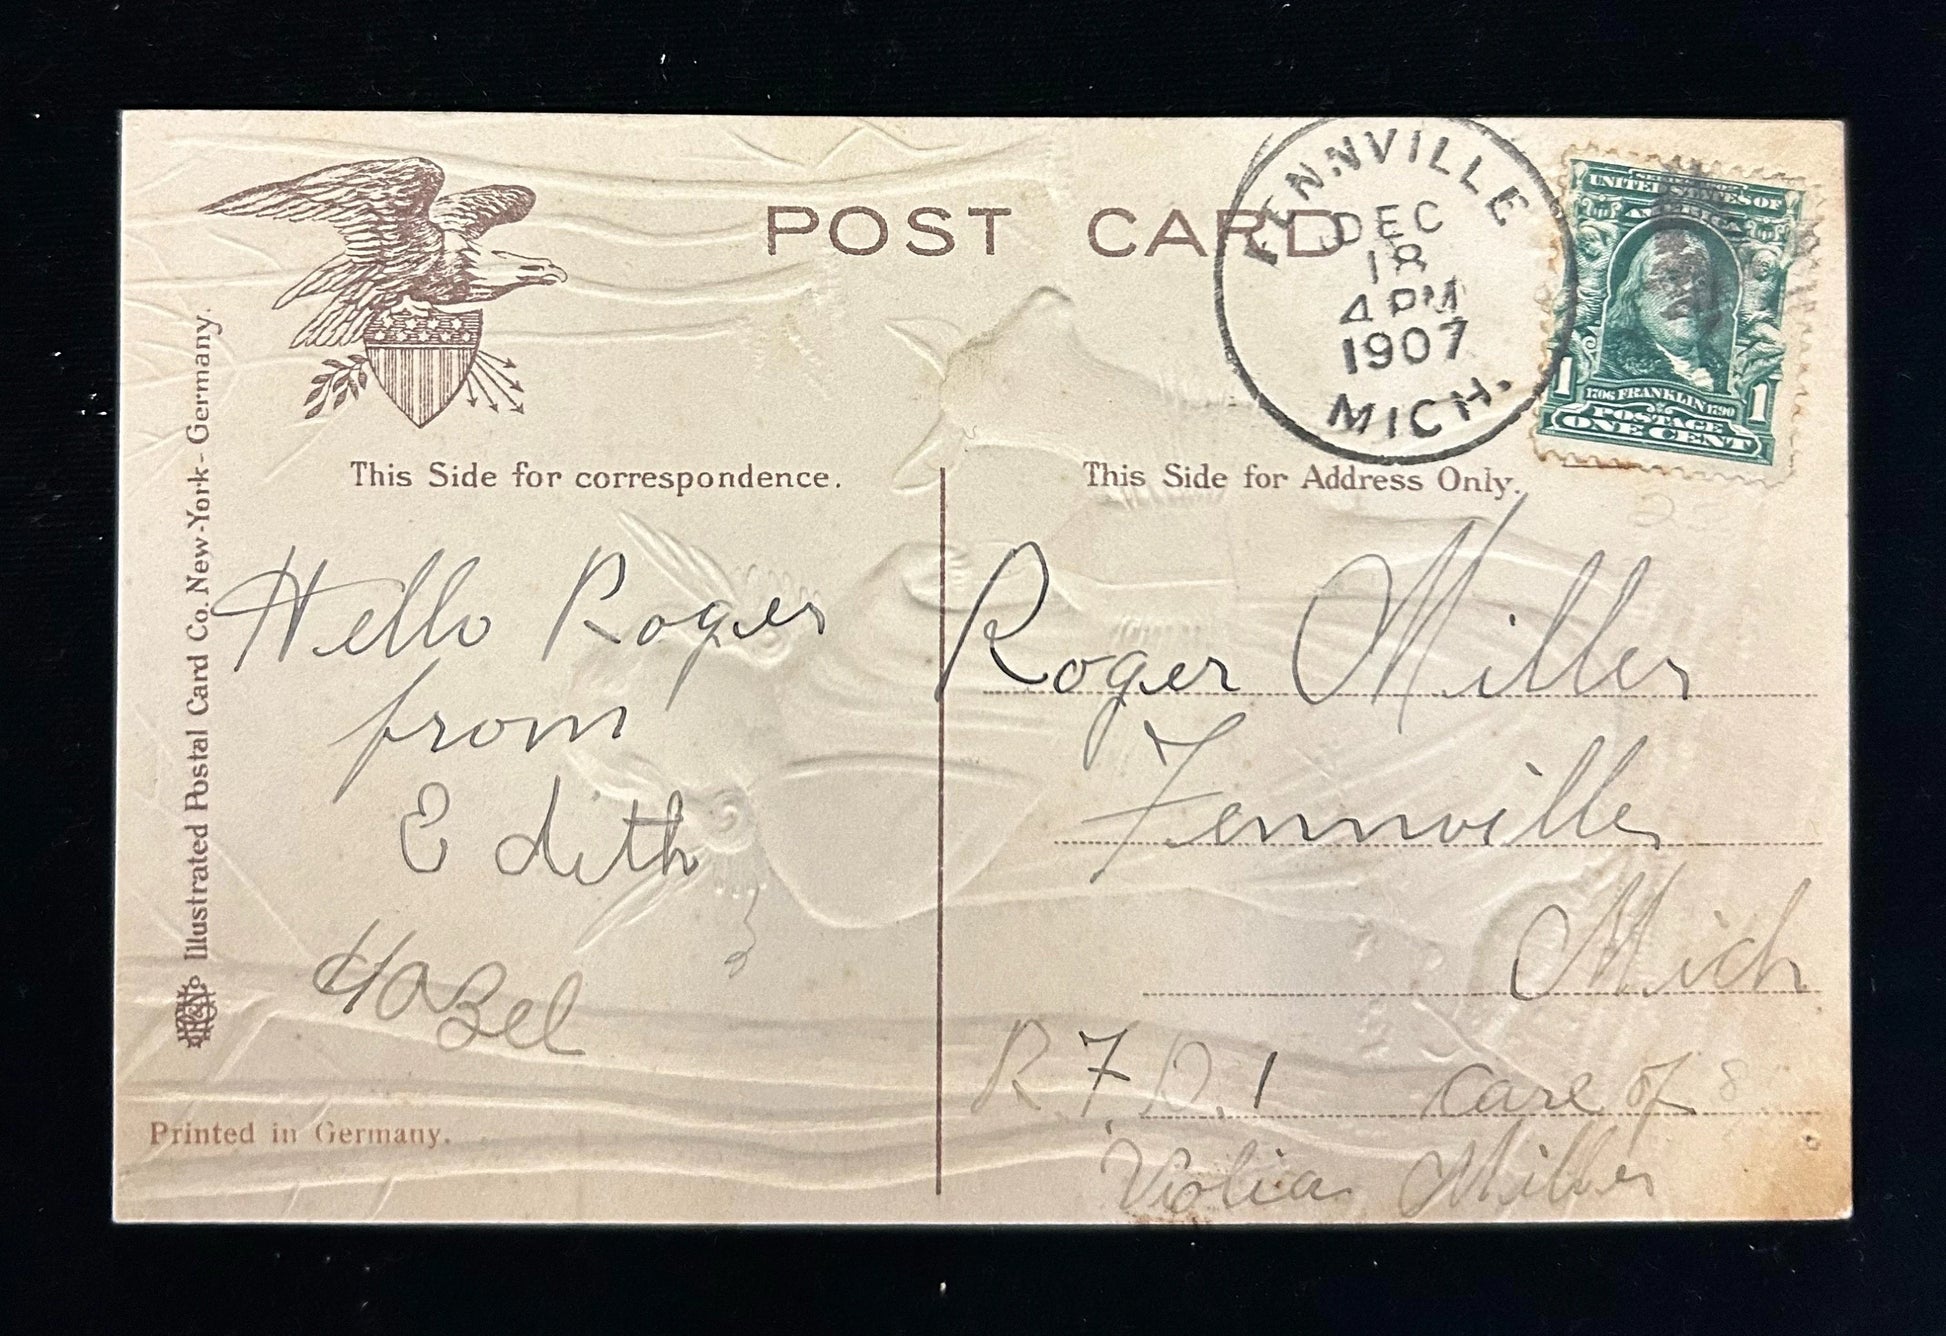 POST CARD
FENNVILLE
DEC
18
4 PM
1907
MICH.
UNITED STATES OF
AMERICA
1 1
1706 FRANKLIN 1790
POSTAGE
ONE CENT
Illustrated Postal Card Co. New-York - Germany.
This Side for correspondence.
Hello Roger
from
Edith
Hazel
Printed in Germany.
This Side for Address Only.
Roger Miller
Fennville
Mich
R. F. D. 1 care of
Violia Miller